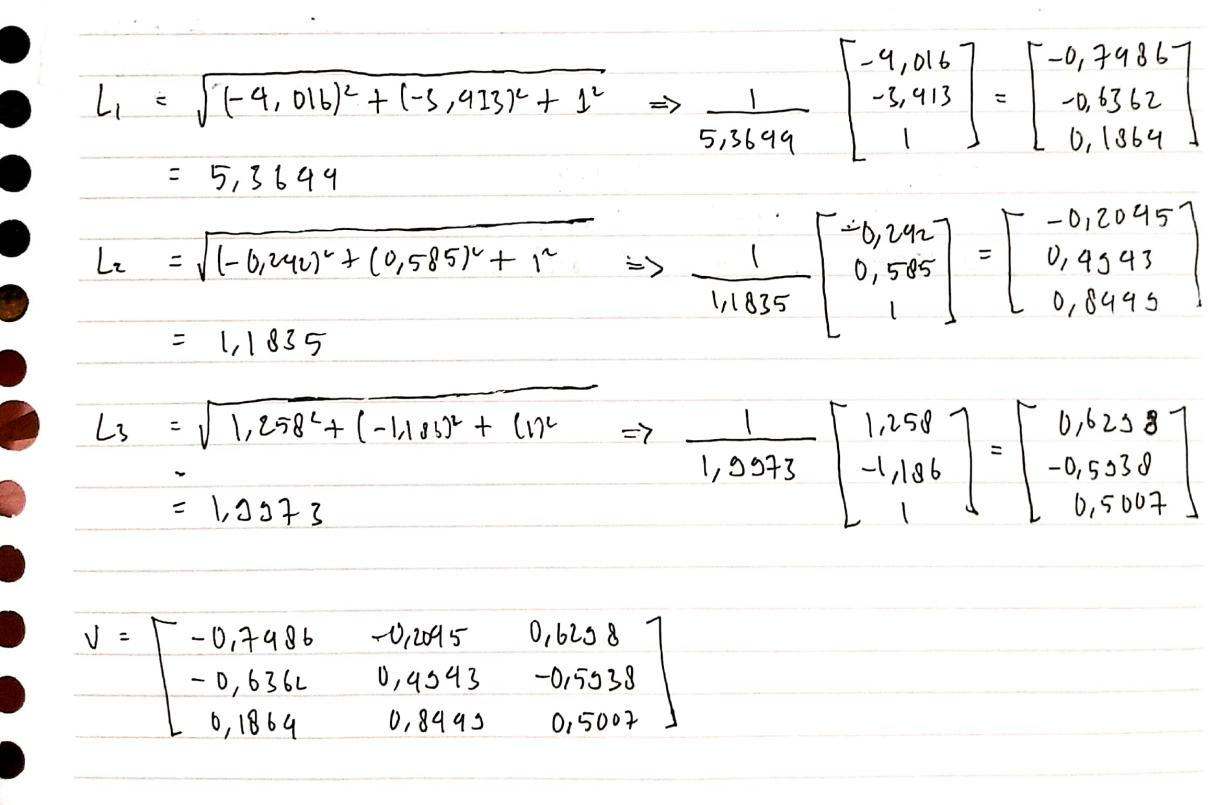 L₁ = √((-4,016)² + (-3,413)² + 1²) ⇒ 1/5,3644 [-4,016 -3,413 1] = [-0,7486 -0,6362 0,1864]
= 5,3644
L₂ = √((-0,242)² + (0,585)² + 1² ⇒ 1/1,1835 [-0,242 0,585 1] = [-0,2045 0,4943 0,8449]
= 1,1835
L₃ = √(1,258² + (-1,186)² + (1)² ⇒ 1/1,9973 [1,258 -1,186 1] = [0,6298 -0,5938 0,5007]
= 1,9973
V = [-0,7486 -0,2045 0,6298
-0,6362 0,4943 -0,5938
0,1864 0,8449 0,5007]